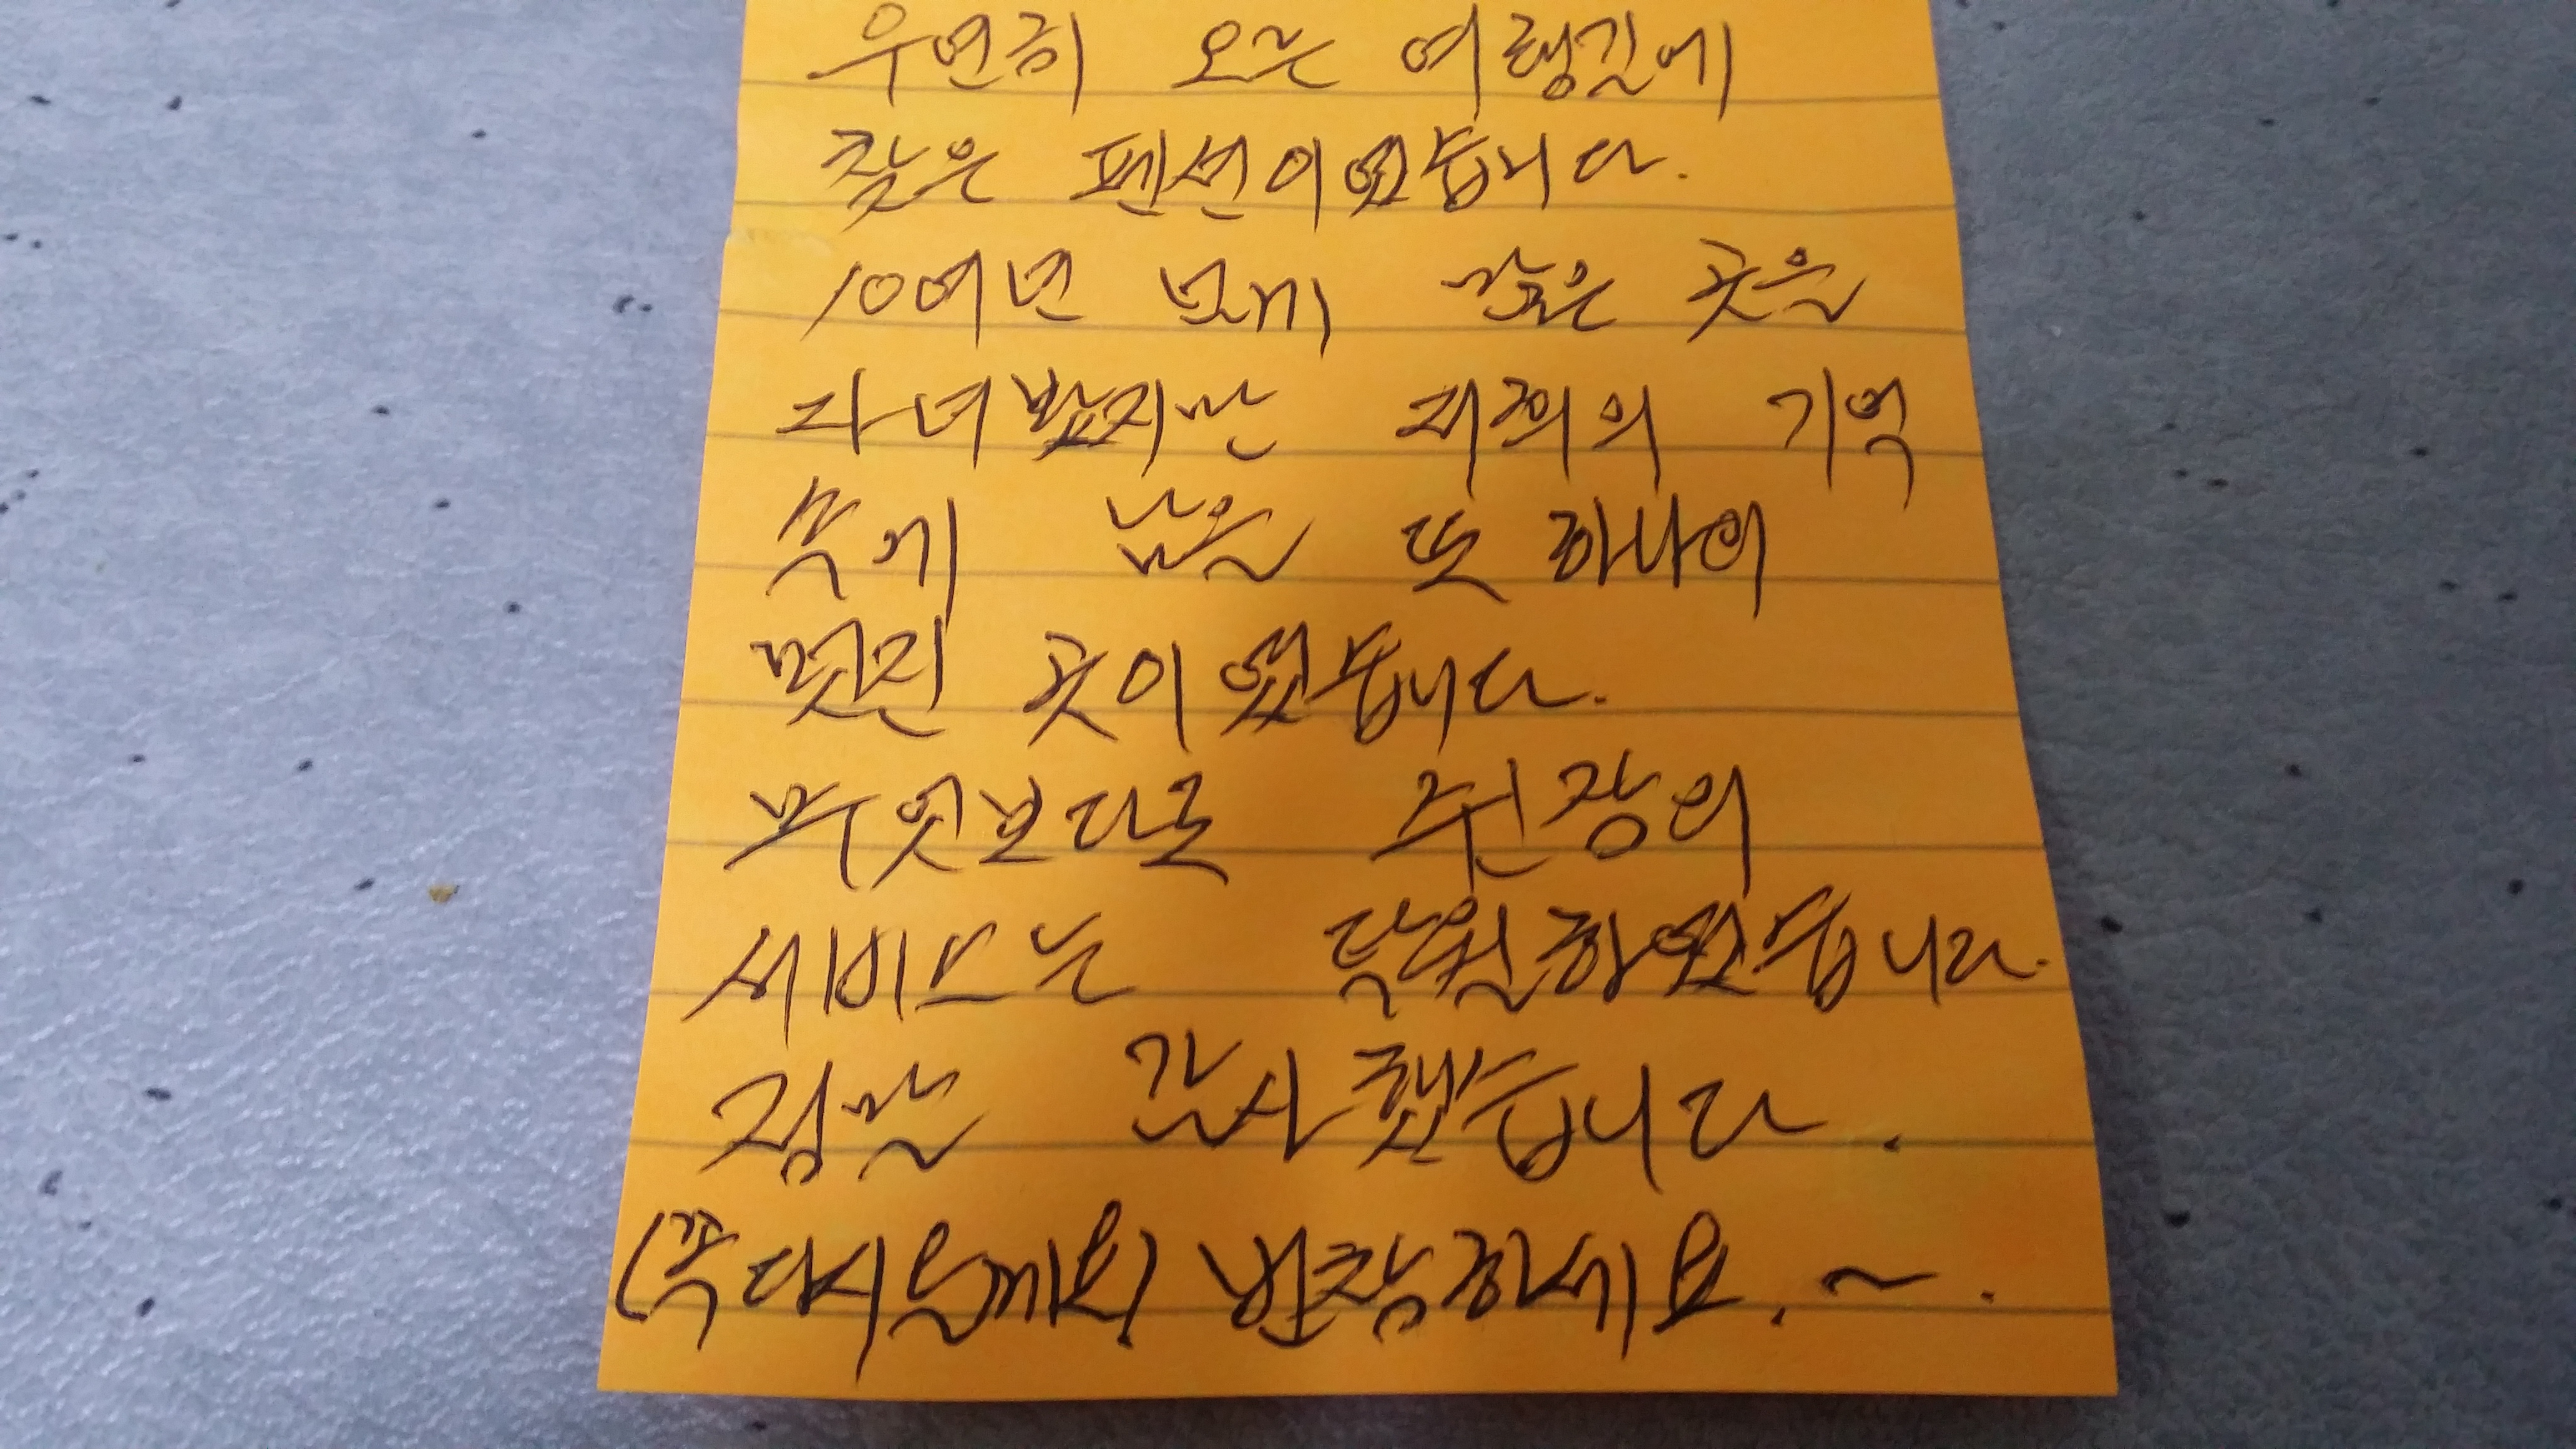 우연히 오른 여행길에
찾은 펜션이었습니다.
10여년 넘게 많은 곳을
다녀봤지만 저희의 기억
속에 남을 또 하나의
멋진 곳이었습니다.
무엇보다도 쥔장의
세비스는 탁월하였습니다.
정말 감사했습니다.
(꼭 다시 올께요) 번창하세요. ~.